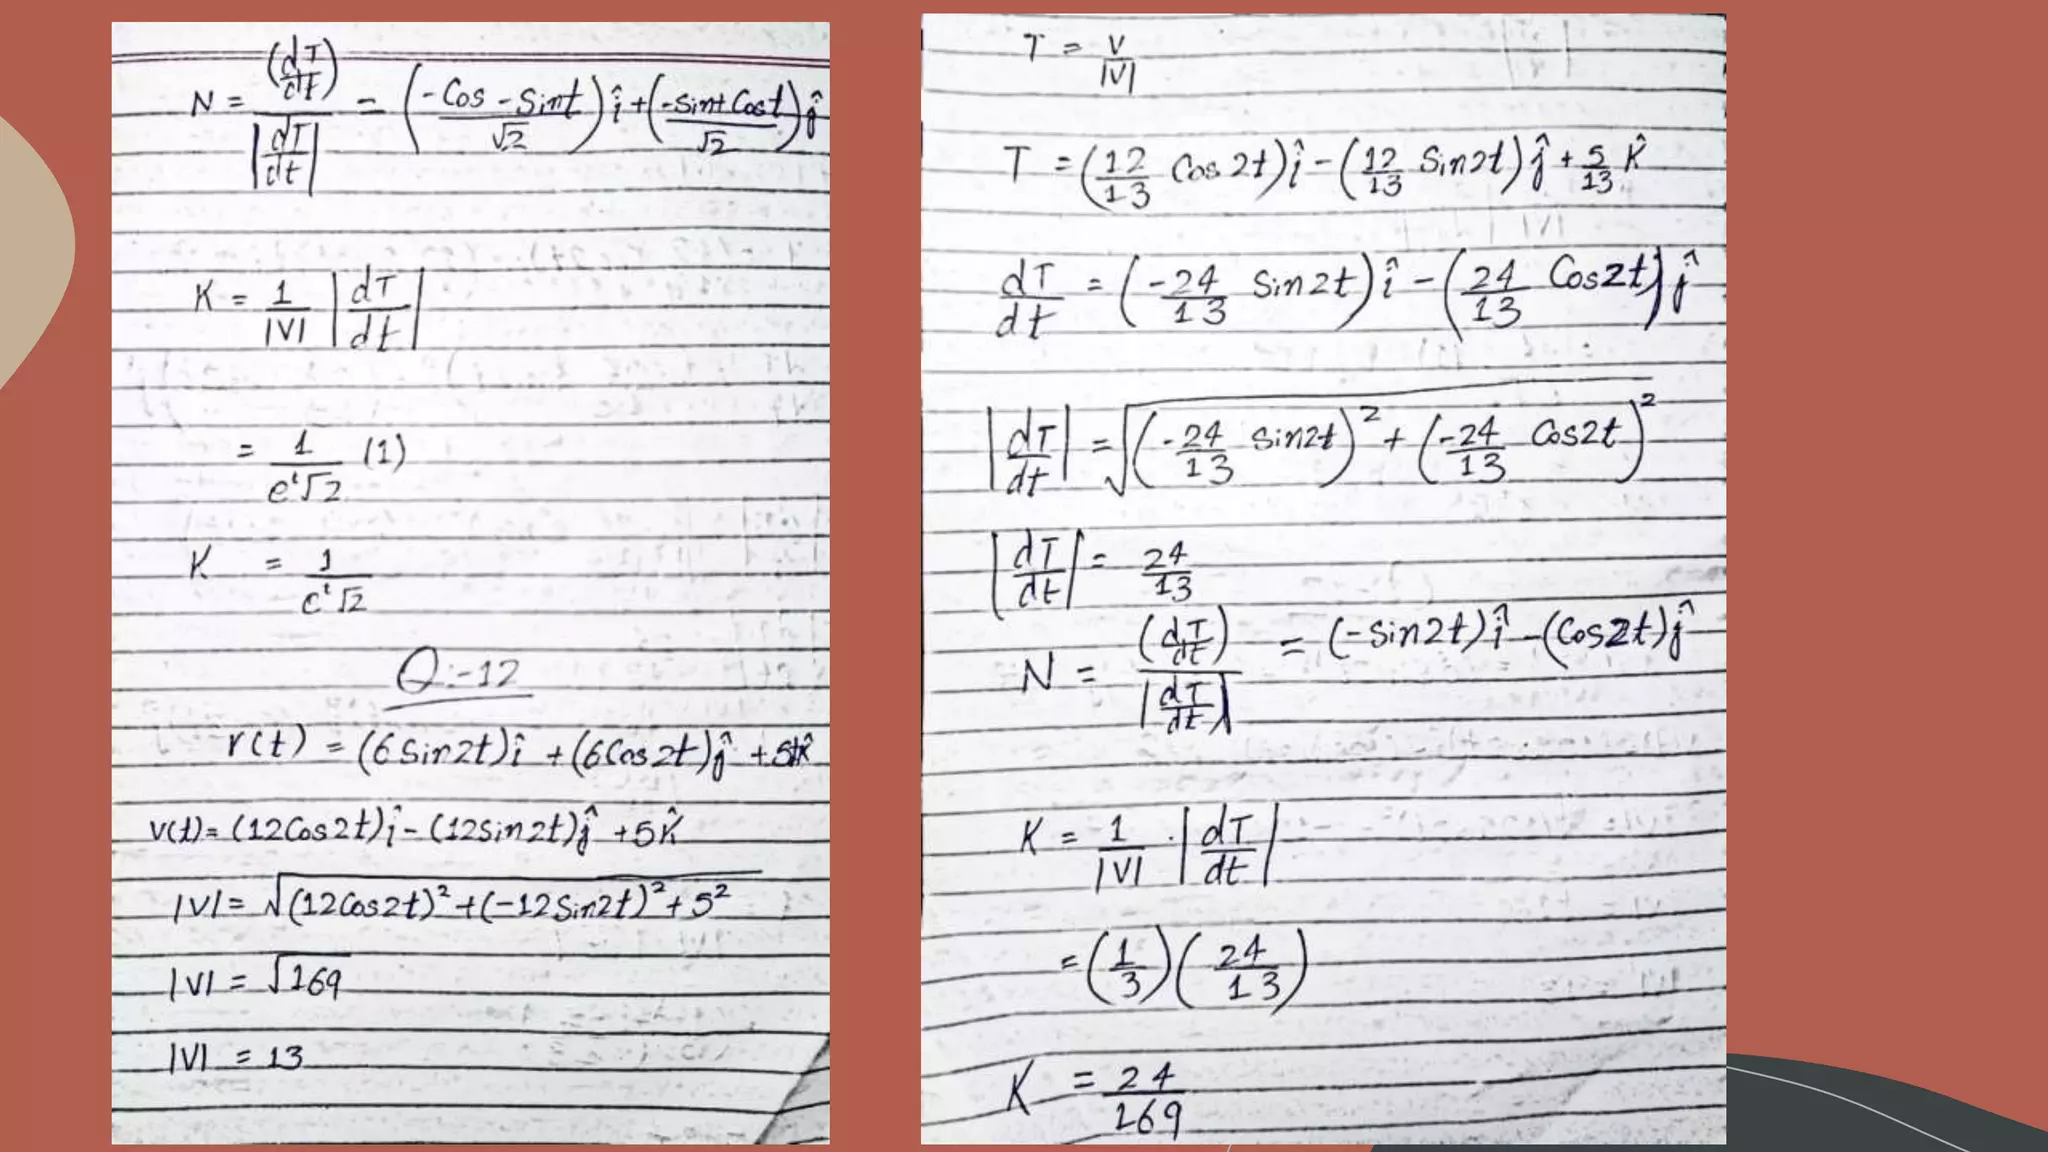 N = (dT/dt) / |dT/dt| = (-Cos -Sint / √2) î + (-sint Cost / √2) ĵ
K = 1/|V| |dT/dt|
= 1/(eᵗ√2) (1)
K = 1/(eᵗ√2)
Q:-12
r(t) = (6 Sin2t)î + (6Cos2t)ĵ + 5tK̂
v(t)= (12Cos2t)î - (12sin2t)ĵ + 5K̂
|V| = √((12Cos2t)² + (-12Sin2t)² + 5²)
|V| = √169
|V| = 13
T = V/|V|
T = (12/13 Cos 2t)î - (12/13 Sin2t)ĵ + 5/13 K̂
dT/dt = (-24/13 Sin2t)î - (24/13 Cos2t)ĵ
|dT/dt| = √((-24/13 Sin2t)² + (-24/13 Cos2t)²)
|dT/dt| = 24/13
N = (dT/dt) / |dT/dt| = (-sin2t)î - (Cos2t)ĵ
K = 1/|V| . |dT/dt|
= (1/3) (24/13)
K = 24/169